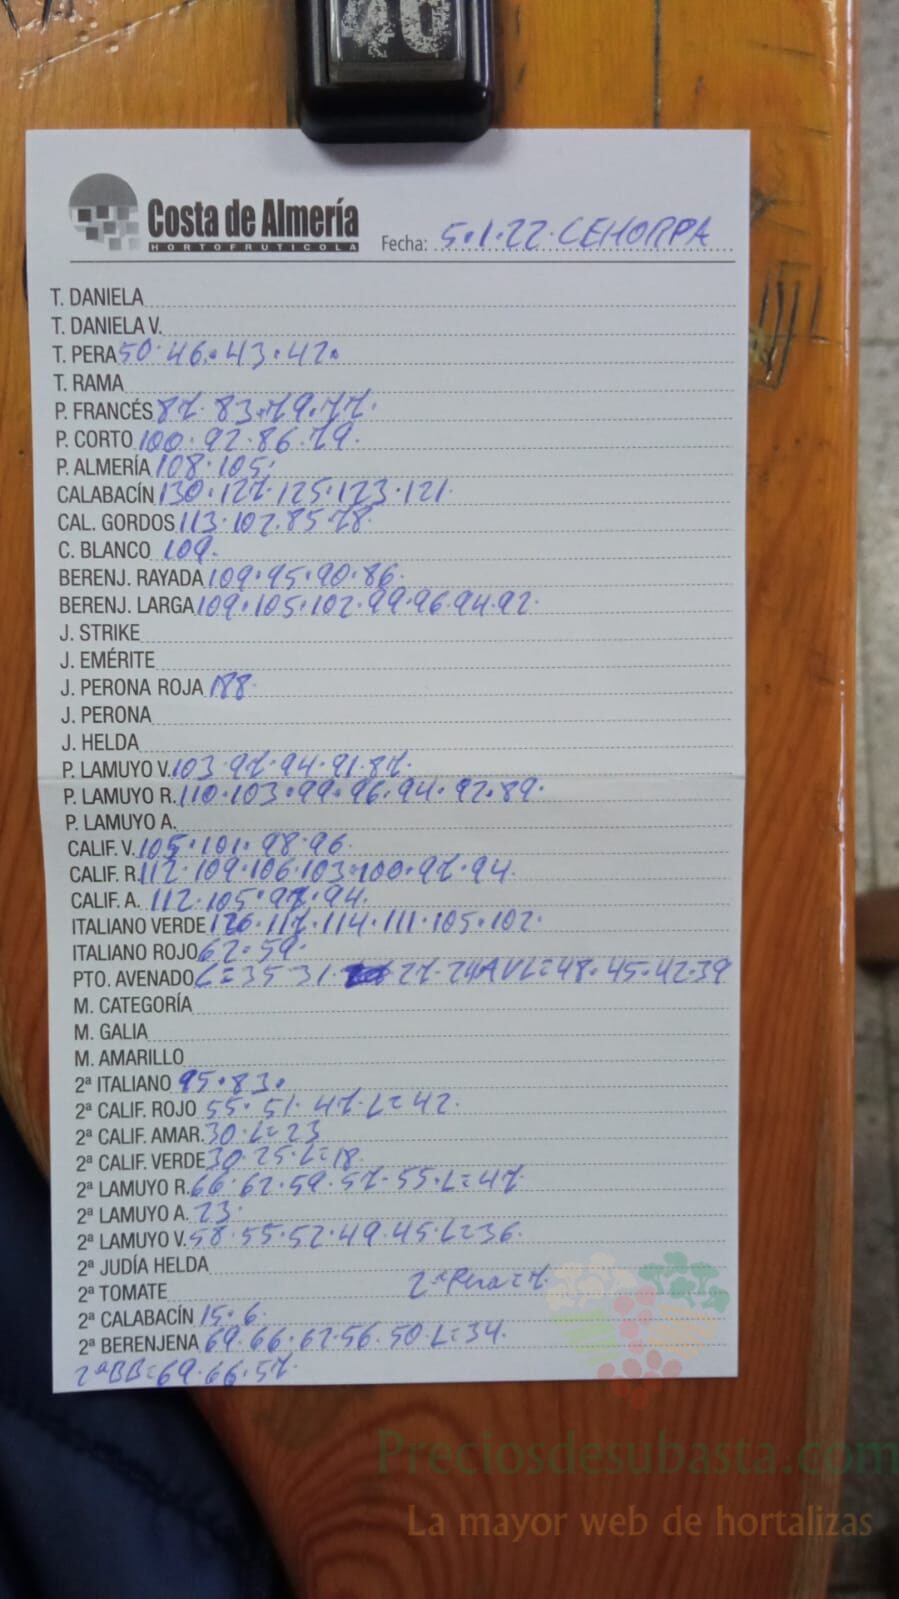 40
Costa de Almería
HORTOFRUTICOLA
Fecha: 5.1.22. CEHORPA
T. DANIELA
T. DANIELA V.
T. PERA 50.46.43.42.
T. RAMA
P. FRANCÉS 87.83.79.77.
P. CORTO 100.92.86.79.
P. ALMERÍA 108.105.
CALABACÍN 130.127.125.123.121.
CAL. GORDOS 113.102.85.78.
C. BLANCO 109.
BERENJ. RAYADA 109.95.90.86.
BERENJ. LARGA 109.105.102.99.96.94.92.
J. STRIKE
J. EMÉRITE
J. PERONA ROJA 188.
J. PERONA
J. HELDA
P. LAMUYO V. 103.97.94.91.87.
P. LAMUYO R. 110.103.99.96.94.92.89.
P. LAMUYO A.
CALIF. V. 105.101.98.96.
CALIF. R. 112.109.106.103.100.97.94.
CALIF. A. 112.105.97.94.
ITALIANO VERDE 126.117.114.111.105.102.
ITALIANO ROJO 62.59.
PTO. AVENADO L=35 31. 27.24 AVL=48.45.42.39
M. CATEGORÍA
M. GALIA
M. AMARILLO
2ª ITALIANO 95.83.
2ª CALIF. ROJO 55.51.47.L=42.
2ª CALIF. AMAR. 30.L=23
2ª CALIF. VERDE 30.25.L=18.
2ª LAMUYO R. 66.62.59.57.55.L=47.
2ª LAMUYO A. 23.
2ª LAMUYO V. 58.55.52.49.45.L=36.
2ª JUDÍA HELDA
2ª TOMATE 2ª Pera=7.
2ª CALABACÍN 15.6.
2ª BERENJENA 69.66.62.56.50.L=34.
2ªBB=69.66.57.
Preciosdesubasta.com
La mayor web de hortalizas